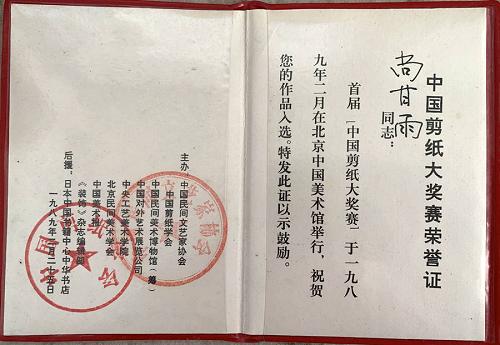 中国剪纸大奖赛荣誉证
尚甘雨同志：
首届「中国剪纸大奖赛」于一九八
九年二月在北京中国美术馆举行，祝贺
您的作品入选。特发此证以示鼓励。
主办：中国民间文艺家协会
中国剪纸学会
中国民间美术博物馆（筹）
中国对外艺术展览公司
中央工艺美术学院
北京民间美术学会
中国美术报
《装饰》杂志编辑部
后援：日本中国中心中华书店
一九八九年二月二十五日